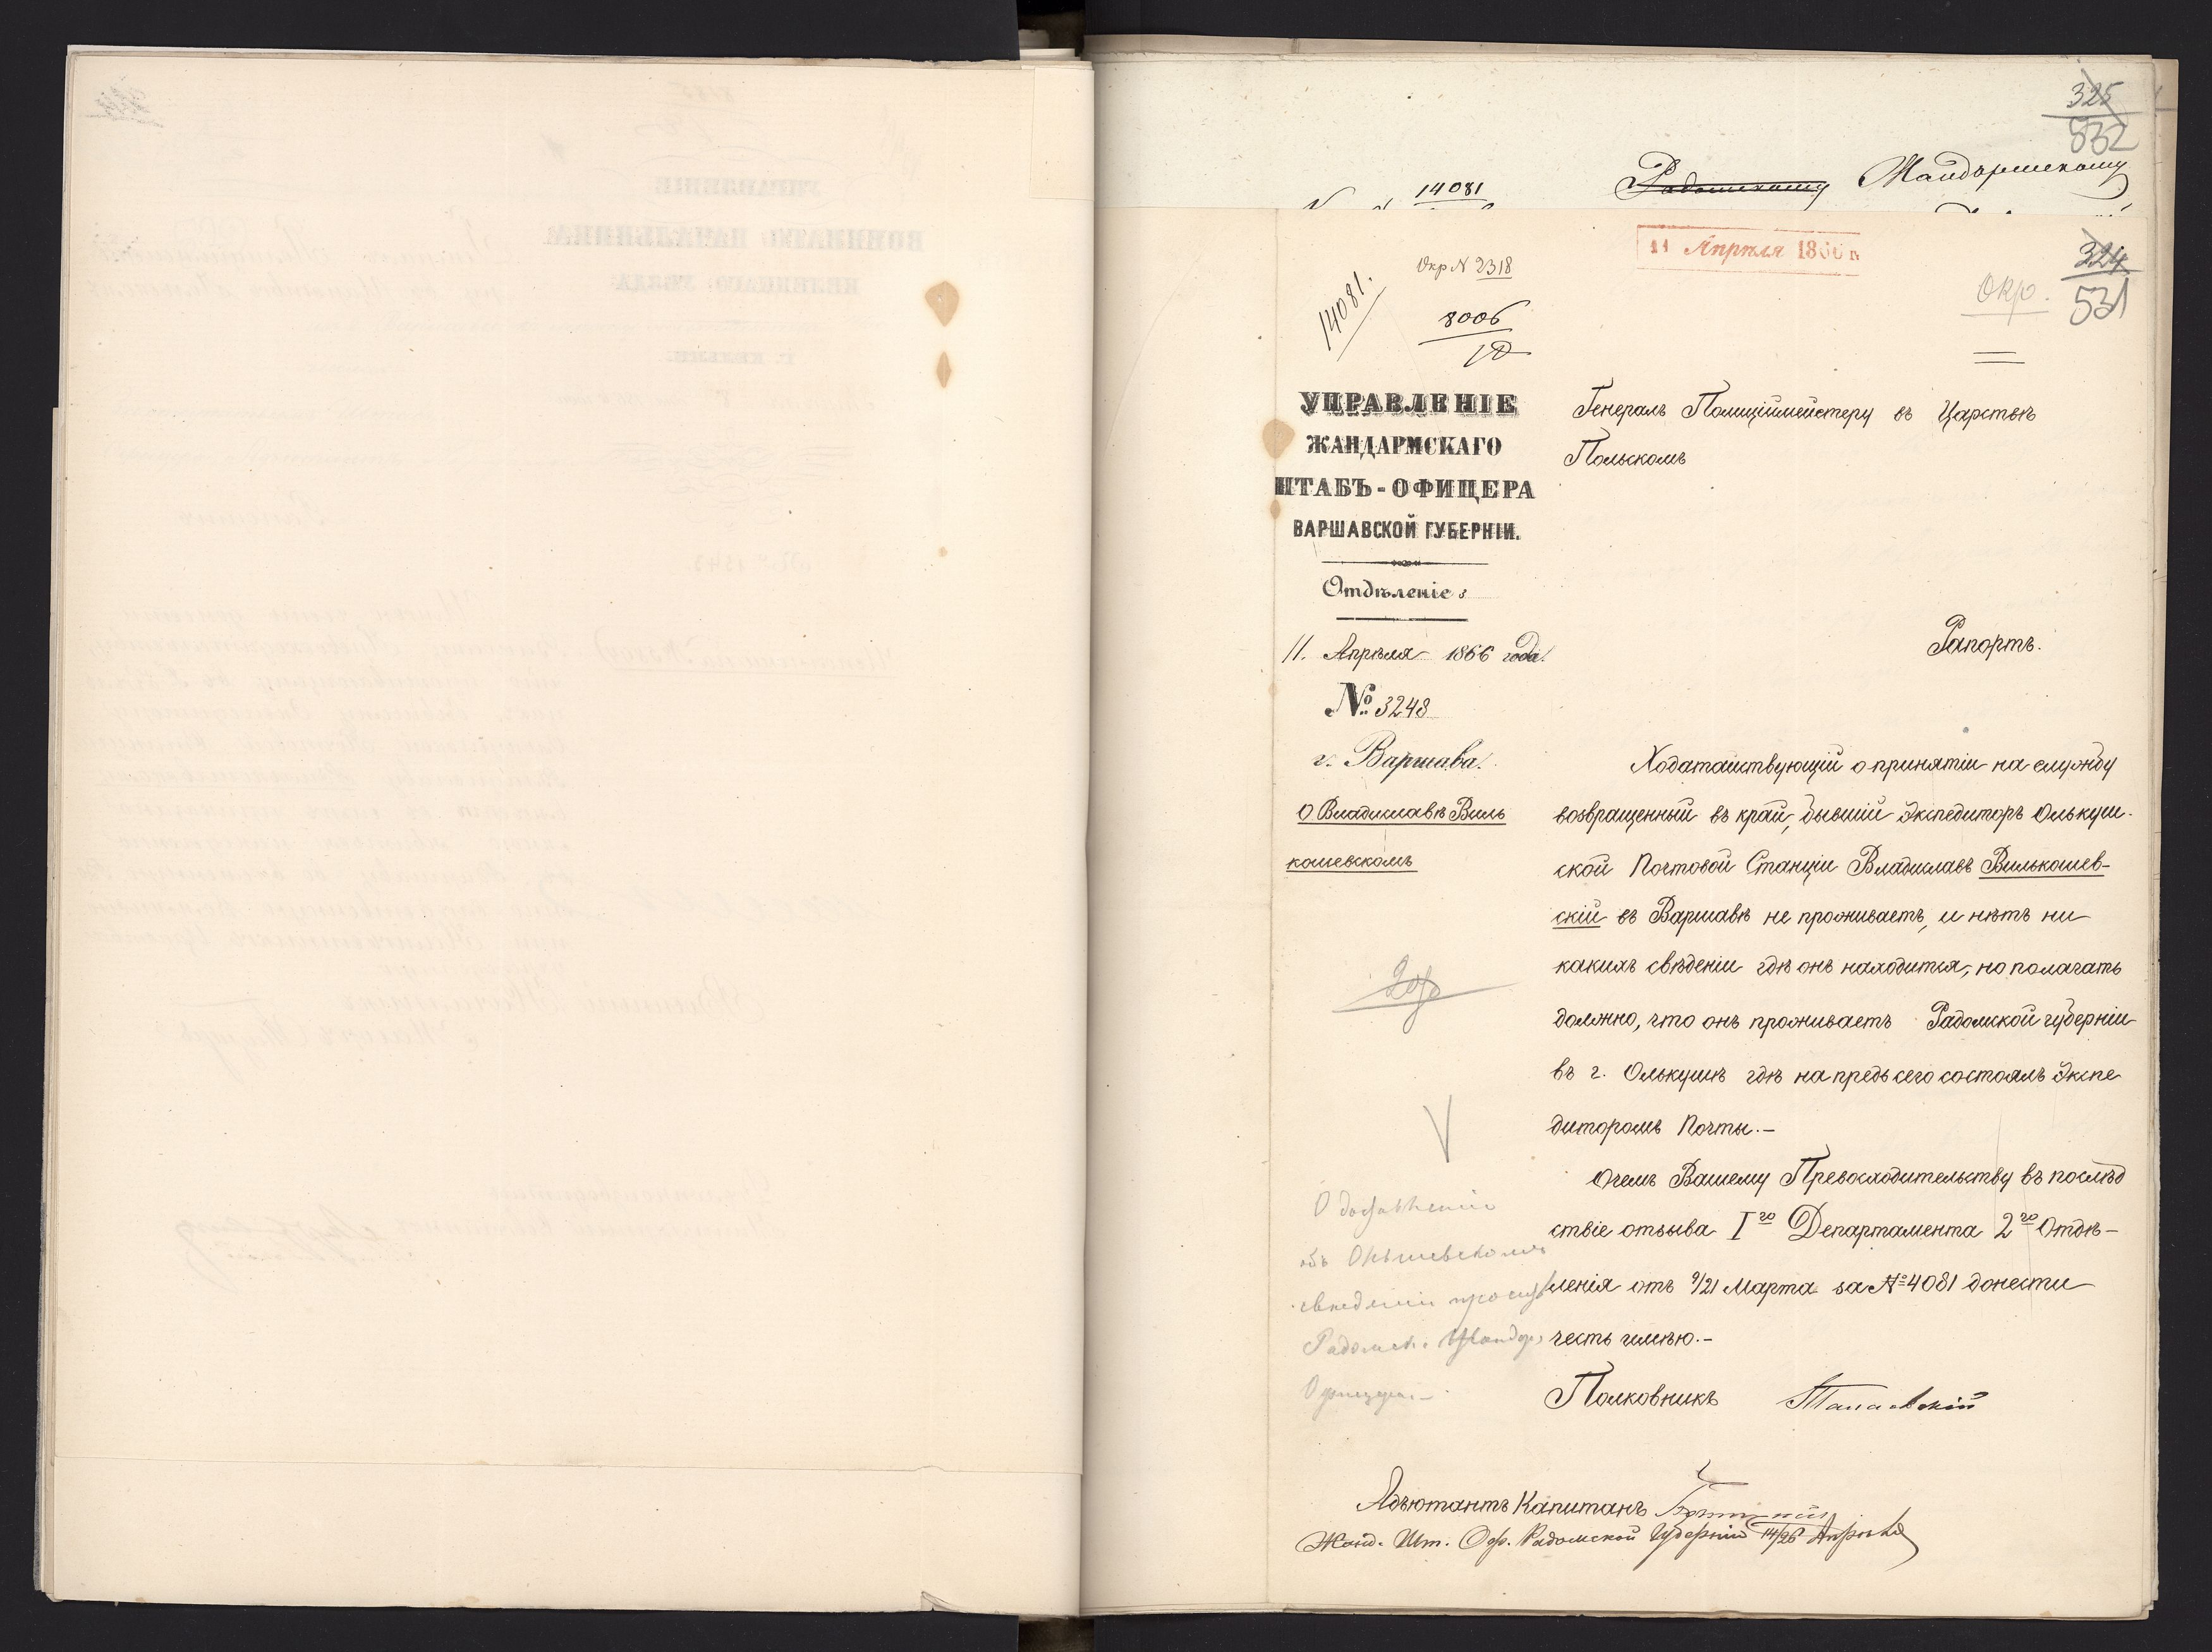 325
532
14081
Радомскому Жандармскому
11 Апрѣля 1866
Окр N 2318
14081.
8006
Окр.
324
531
УПРАВЛЕНІЕ
ЖАНДАРМСКАГО
ШТАБЪ-ОФИЦЕРА
ВАРШАВСКОЙ ГУБЕРНІИ.
Отдѣленіе
11. Апрѣля 1866 года.
№ 3248
г. Варшава.
О Владиславѣ Виль
кошевскомъ
Генералъ Полиціймейстеру въ Царствѣ
Польскомъ
Рапортъ.
Ходатайствующій о принятіи на службу
возвращенный въ край, бывшій Экспедиторъ Олькуш-
ской Почтовой Станціи Владиславъ Вилькошев-
скій въ Варшавѣ не проживаетъ, и нѣтъ ни
какихъ свѣденіи гдѣ онъ находится, но полагать
должно, что онъ проживаетъ Радомской губерніи
въ г. Олькушѣ гдѣ на предь сего состоялъ Экспе
диторомъ Почты.-
Очемъ Вашему Превосходительству въ послѣд
ствіе отзыва Iго Департамента 2го Отдѣ-
ленія отъ 9/21 Марта за № 4081 донести
честь имѣю.-
О доставленіи
объ
свѣденіи
Радомск. Жандар.
Офицера.-
Полковникъ
Адъютантъ Капитанъ
Жанд. Шт. Оф. Радомской Губерніи 14/26 Апрѣля